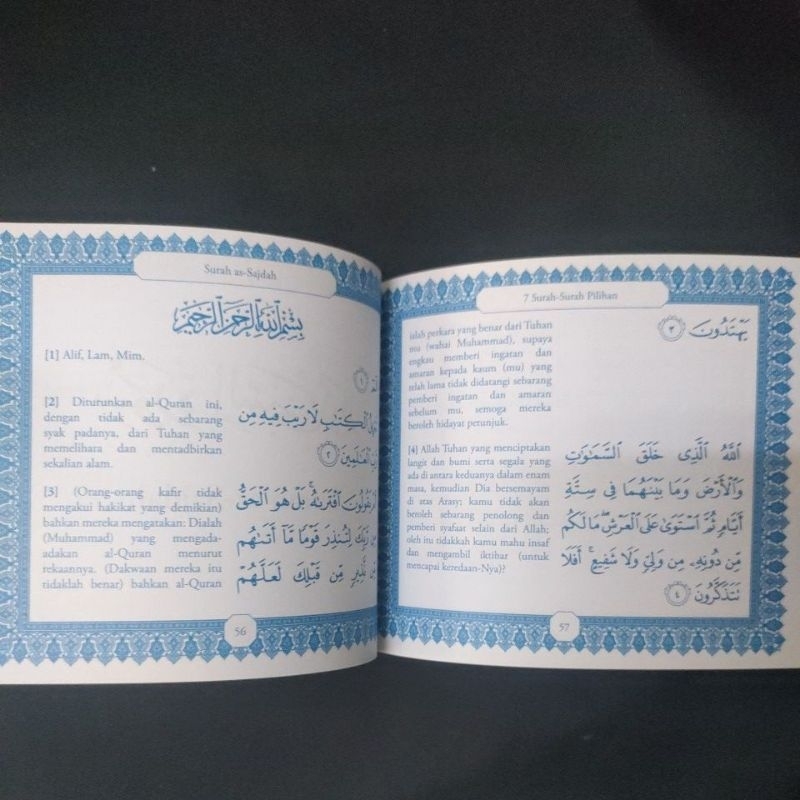 Surah as-Sajdah
بِسْمِ ٱللَّهِ ٱلرَّحْمَٰنِ ٱلرَّحِيمِ
[1] Alif, Lam, Mim.
١
[2] Diturunkan al-Quran ini,
dengan tidak ada sebarang
syak padanya, dari Tuhan yang
memelihara dan mentadbirkan
sekalian alam.
ٱلْكِتَٰبِ لَا رَيْبَ فِيهِ مِن
ٱلْعَٰلَمِينَ ٢
[3] (Orang-orang kafir tidak
mengakui hakikat yang demikian)
bahkan mereka mengatakan: Dialah
(Muhammad) yang mengada-
adakan al-Quran menurut
rekaannya. (Dakwaan mereka itu
tidaklah benar) bahkan al-Quran
يَقُولُونَ ٱفْتَرَىٰهُ ۚ بَلْ هُوَ ٱلْحَقُّ
مِن رَّبِّكَ لِتُنذِرَ قَوْمًا مَّآ أَتَىٰهُم
مِّن نَّذِيرٍ مِّن قَبْلِكَ لَعَلَّهُمْ
56
7 Surah-Surah Pilihan
ialah perkara yang benar dari Tuhan
mu (wahai Muhammad), supaya
engkau memberi ingatan dan
amaran kepada kaum (mu) yang
telah lama tidak didatangi sebarang
pemberi ingatan dan amaran
sebelum mu, semoga mereka
beroleh hidayat petunjuk.
يَهْتَدُونَ ٣
[4] Allah Tuhan yang menciptakan
langit dan bumi serta segala yang
ada di antara keduanya dalam enam
masa, kemudian Dia bersemayam
di atas Arasy; kamu tidak akan
beroleh sebarang penolong dan
pemberi syafaat selain dari Allah;
oleh itu tidakkah kamu mahu insaf
dan mengambil iktibar (untuk
mencapai keredaan-Nya)?
ٱللَّهُ ٱلَّذِى خَلَقَ ٱلسَّمَٰوَٰتِ
وَٱلْأَرْضَ وَمَا بَيْنَهُمَا فِى سِتَّةِ
أَيَّامٍ ثُمَّ ٱسْتَوَىٰ عَلَى ٱلْعَرْشِ ۖ مَا لَكُم
مِّن دُونِهِۦ مِن وَلِىٍّ وَلَا شَفِيعٍ ۚ أَفَلَا
تَتَذَكَّرُونَ ٤
57